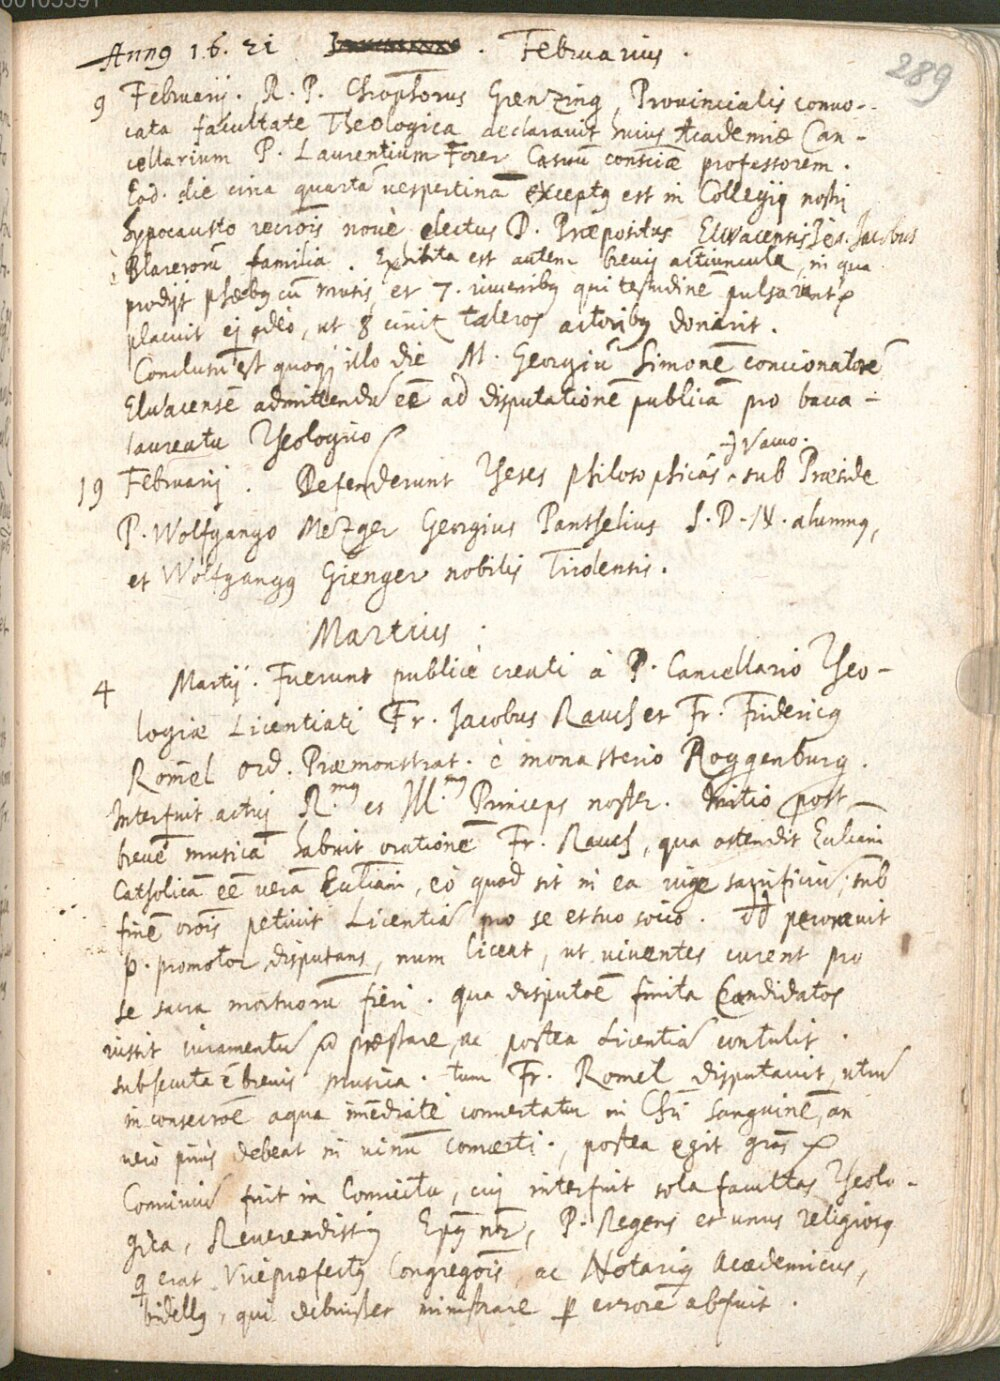 00105591
Anno 16.21 . Februarius .
289
9 Februarij . R. P. Chrophorus Grenzing, Prouincialis conuo-
cata facultate Theologica declarauit huius Academiæ Can-
cellarium P. Laurentium Forer Casuū consciæ professorem .
Eod. die circa quartā uespertinā exceptq est in Collegij nostri
hypocausto recrōis nouè electus D. Præpositus Elwacensis Jacobus
è Blarerorū familia . Exhibita est autem breuis actiuncula, in qua
prodijt phæbq cū musis et 7. iuuenibq qui testudinē pulsarunt
placuit ej adeò, ut 8 taleros actoribq donarit .
Conclusū est quoq illo die M. Georgiū Simonē concionatorē
Elwacensē admittendū eē ad disputationē publicā pro bacca-
laureatu Theologico
19 Februarij . Defenderunt Theses philosophicas de Vacuo. sub Præside
P. Wolfgango Mezger Georgius Panthelius S. D. N. alumnq,
et Wolfgangq Gienger nobilis Tirolensis .
Martius .
4 Martij . Fuerunt publicè creati à P. Cancellario Theo-
logiæ Licentiati Fr. Jacobus Rauch et Fr. Fridericq
Romel ord. Præmonstrat. è monasterio Roggenburg .
Interfuit actuj R.mq et Ill.mq Princeps noster . Initio post
breuē musicā habuit orationē Fr. Rauch, qua ostendit Eccliam
Catholicā eē uerā Eccliam, eò quod sit in ea iuge sacrificiū, sub
finē orōis petiuit Licentiā pro se et suo socio . perorauit
P. promotor disputans, num liceat, ut uiuentes curent pro
se sacra mortuorū fieri . qua disputōe finita Candidatos
iussit iuramentū præstare, ac postea Licentiā contulit .
subsecuta ē breuis musica . tum Fr. Romel disputauit, utrū
in consecrōe aqua imēdiatè conuertatur in Chri sanguinē, an
uerò priùs debeat in uinū conuerti ., postea egit grās
Conuiuiū fuit in Conuictu, cuj interfuit sola facultas Theolo-
gica, Reuerendissimq Epq nr̄, P. Regens et unus religiosq
q erat Vicepræfectq Congregōis, ac Notariq Academicus,
bidellq, qui debuisset ministrare p errorē abfuit .